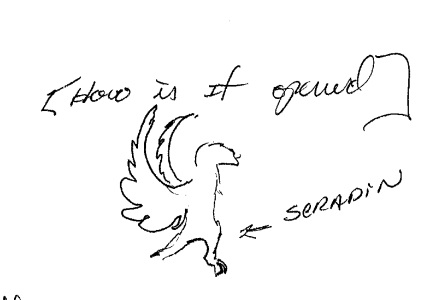 [How is It opened]
SERADIN